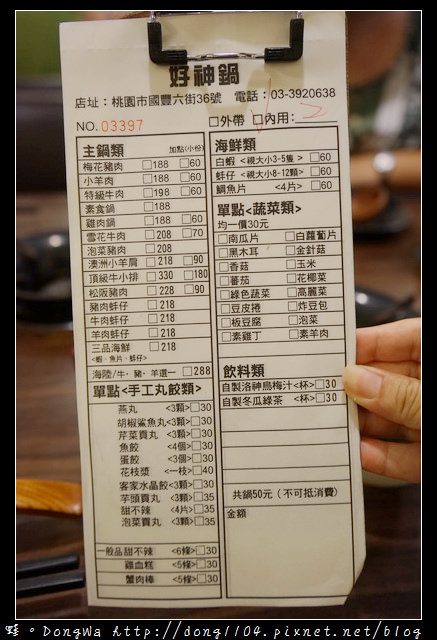 好神鍋
店址：桃園市國豐六街36號 電話：03-3920638
NO. 03397 □外帶 □內用：2
主鍋類 加點(小份)
梅花豬肉 □188 □60
小羊肉 □188 □60
特級牛肉 □198 □60
素食鍋 □188
雞肉鍋 □188 □60
雪花牛肉 □208 □70
泡菜豬肉 □208
澳洲小羊肩 □218 □90
頂級牛小排 □330 □180
松阪豬肉 □228 □90
豬肉蚌仔 □218
牛肉蚌仔 □218
羊肉蚌仔 □218
三品海鮮 □218
<蝦、魚片、蚌仔>
海陸/牛、豬、羊選一 □288
單點<手工丸餃類>
燕丸 <3顆>□30
胡椒鯊魚丸<3顆>□30
芹菜貢丸 <3顆>□30
魚餃 <4個>□30
蛋餃 <3個>□30
花枝漿 <一枝>□40
客家水晶餃<3顆>□30
芋頭貢丸 <3顆>□35
甜不辣 <4片>□35
泡菜貢丸 <3顆>□35
一般品甜不辣 <6條>□30
雞血糕 <5條>□30
蟹肉棒 <5條>□30
海鮮類
白蝦 <視大小3-5隻> □60
蚌仔 <視大小8-12顆> □60
鯛魚片 <4片> □60
單點<蔬菜類>
均一價30元
□南瓜片 □白蘿蔔片
□黑木耳 □金針菇
□香菇 □玉米
□蕃茄 □花椰菜
□綠色蔬菜 □高麗菜
□豆皮捲 □炸豆包
□板豆腐 □泡菜
□素雞丁 □素羊肉
飲料類
自製洛神烏梅汁<杯>□30
自製冬瓜綠茶 <杯>□30
共鍋50元（不可抵消費）
金額
蛙。DongWa Http://dong1104.pixnet.net/blog